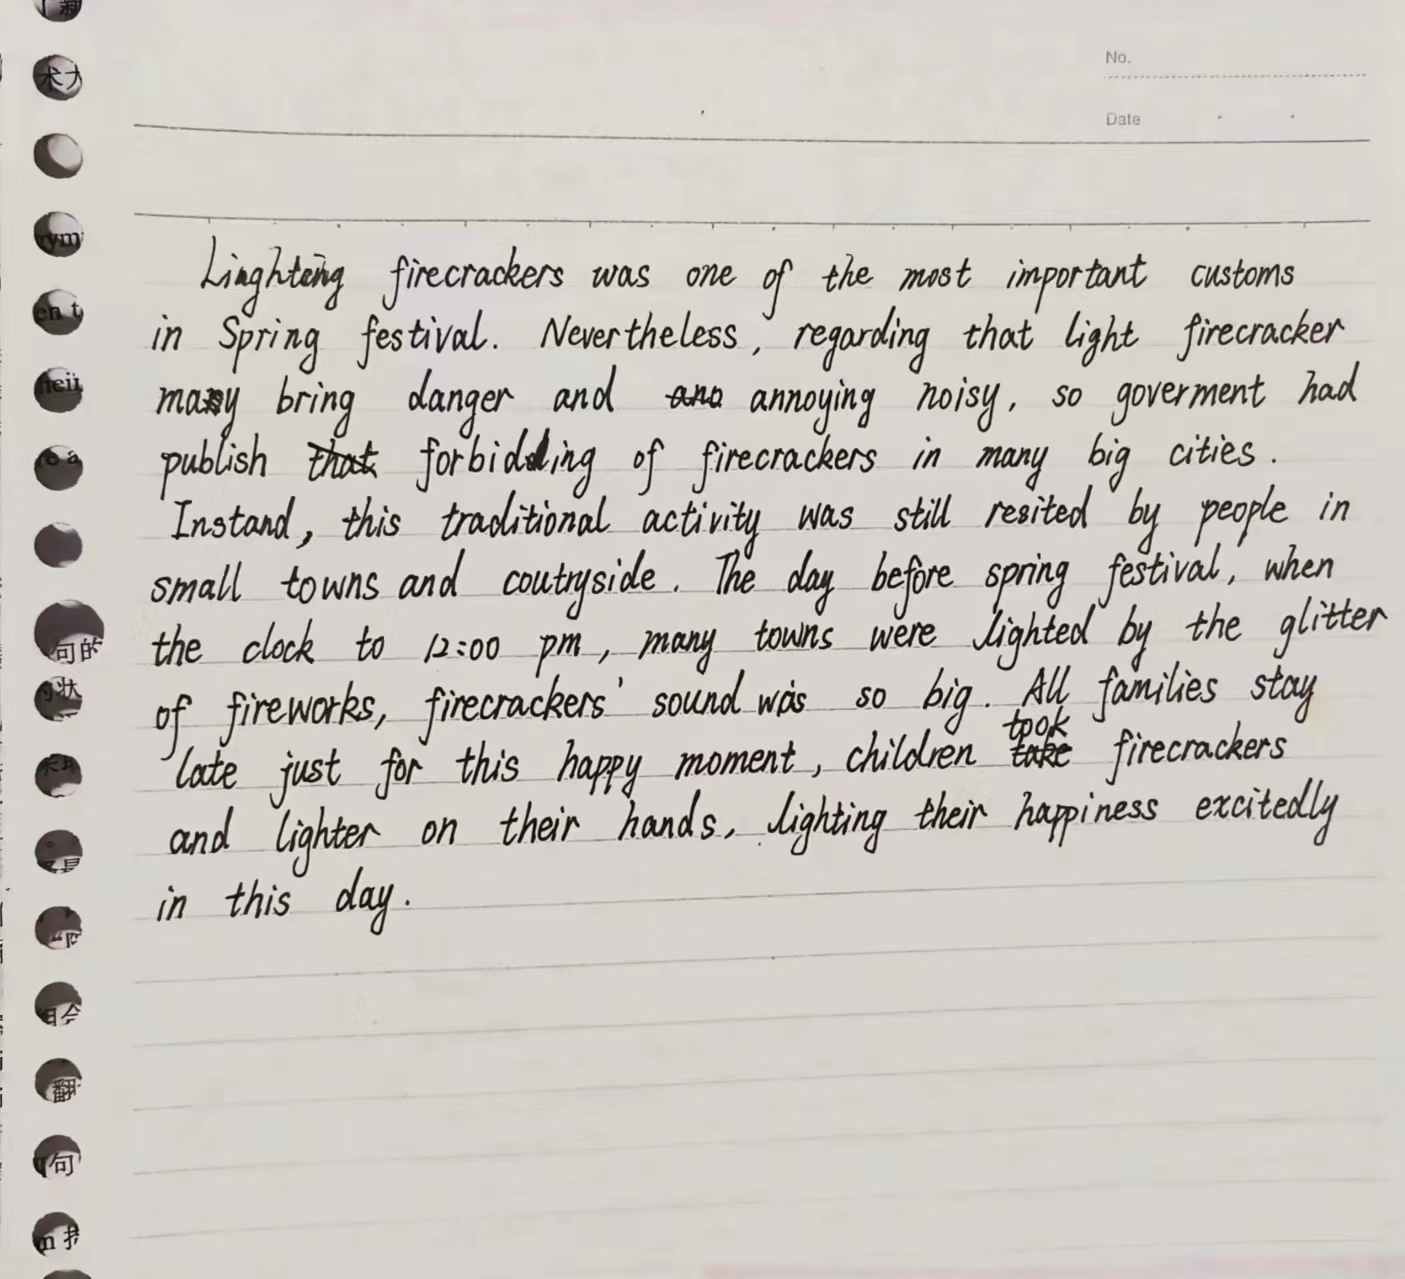 No.
Date
Linghting firecrackers was one of the most important customs
in Spring festival. Nevertheless, regarding that light firecracker
may bring danger and annoying noisy, so goverment had
publish forbidding of firecrackers in many big cities.
Instand, this traditional activity was still resited by people in
small towns and coutryside. The day before spring festival, when
the clock to 12:00 pm, many towns were lighted by the glitter
of fireworks, firecrackers' sound was so big. All families stay
late just for this happy moment, children took firecrackers
and lighter on their hands, lighting their happiness excitedly
in this day.